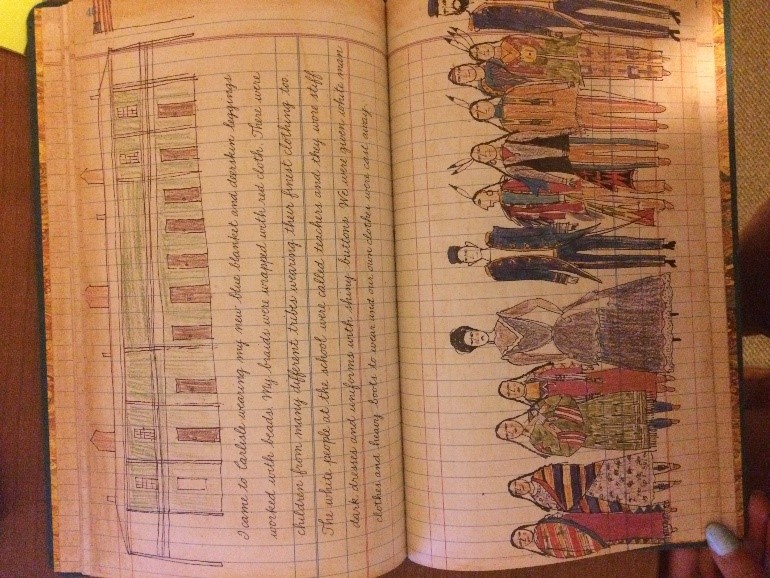 I came to Carlisle wearing my new blue blanket and deerskin leggings
worked with beads. My braids were wrapped with red cloth. There were
children from many different tribes wearing their finest clothing too.
The white people at the school were called teachers and they wore stiff
dark dresses and uniforms with shiny buttons. We were given white man
clothes and heavy boots to wear and our own clothes were cast away.